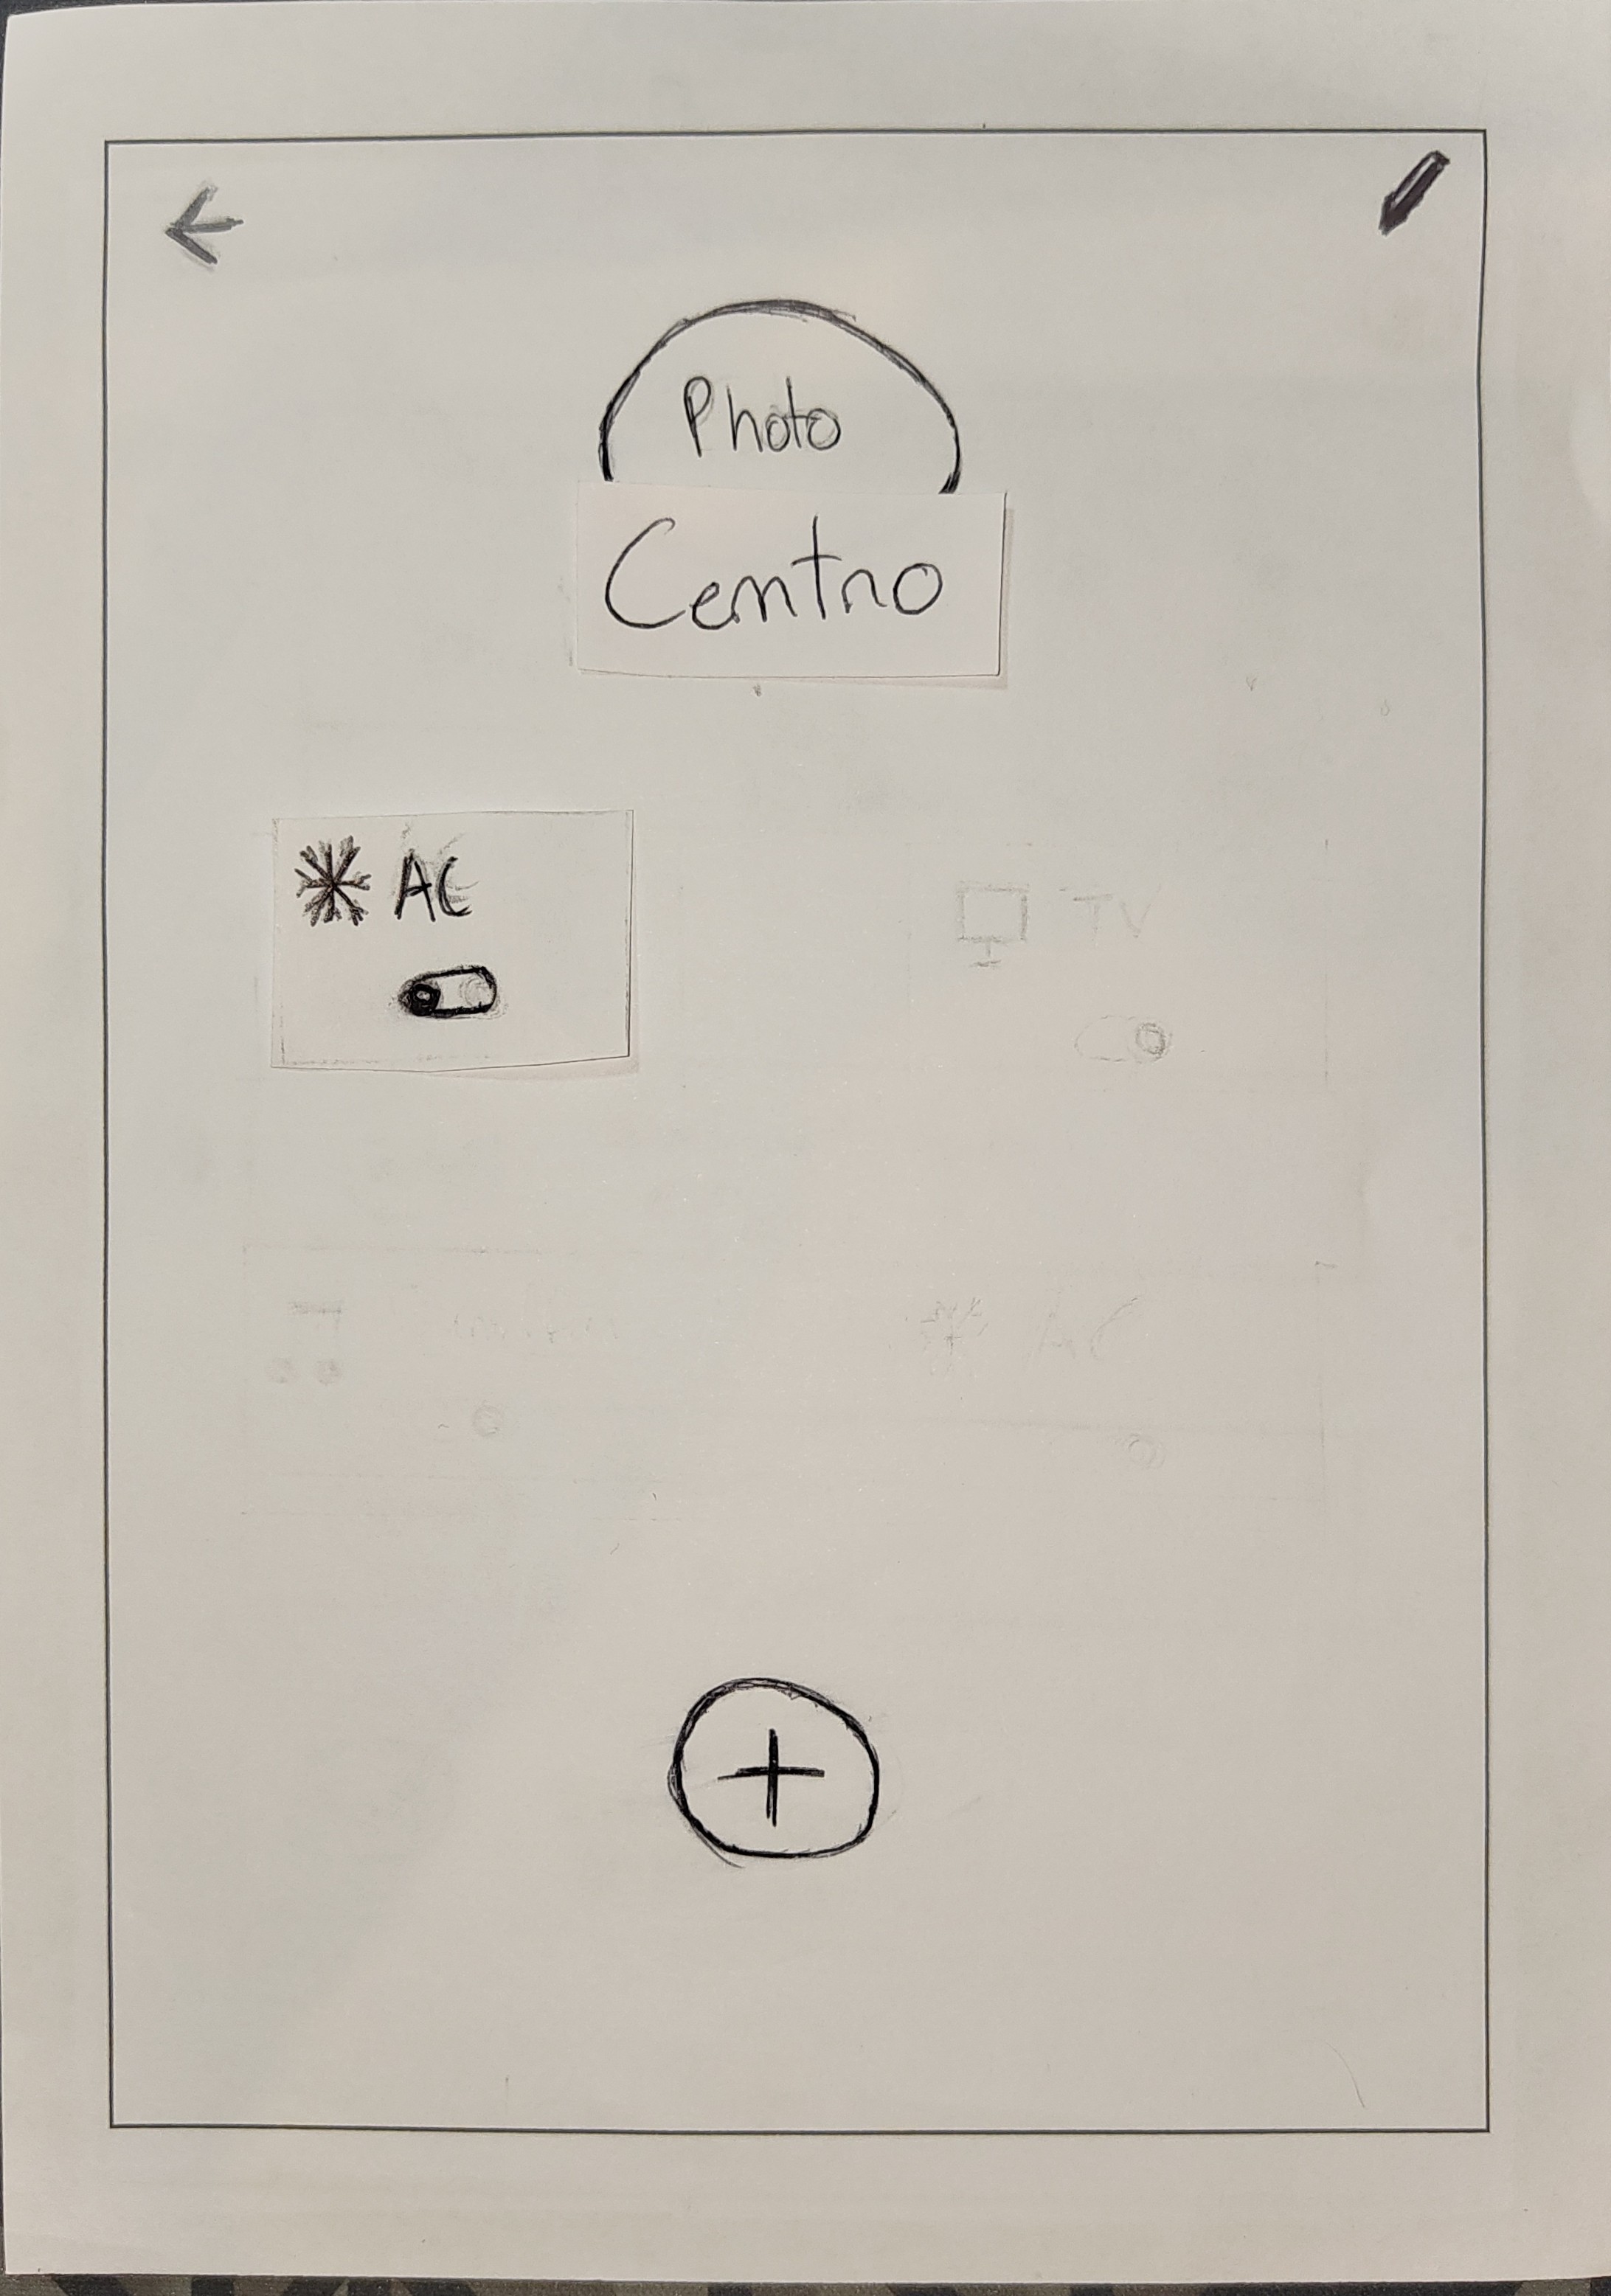 Photo
Centro
AC
TV
AC